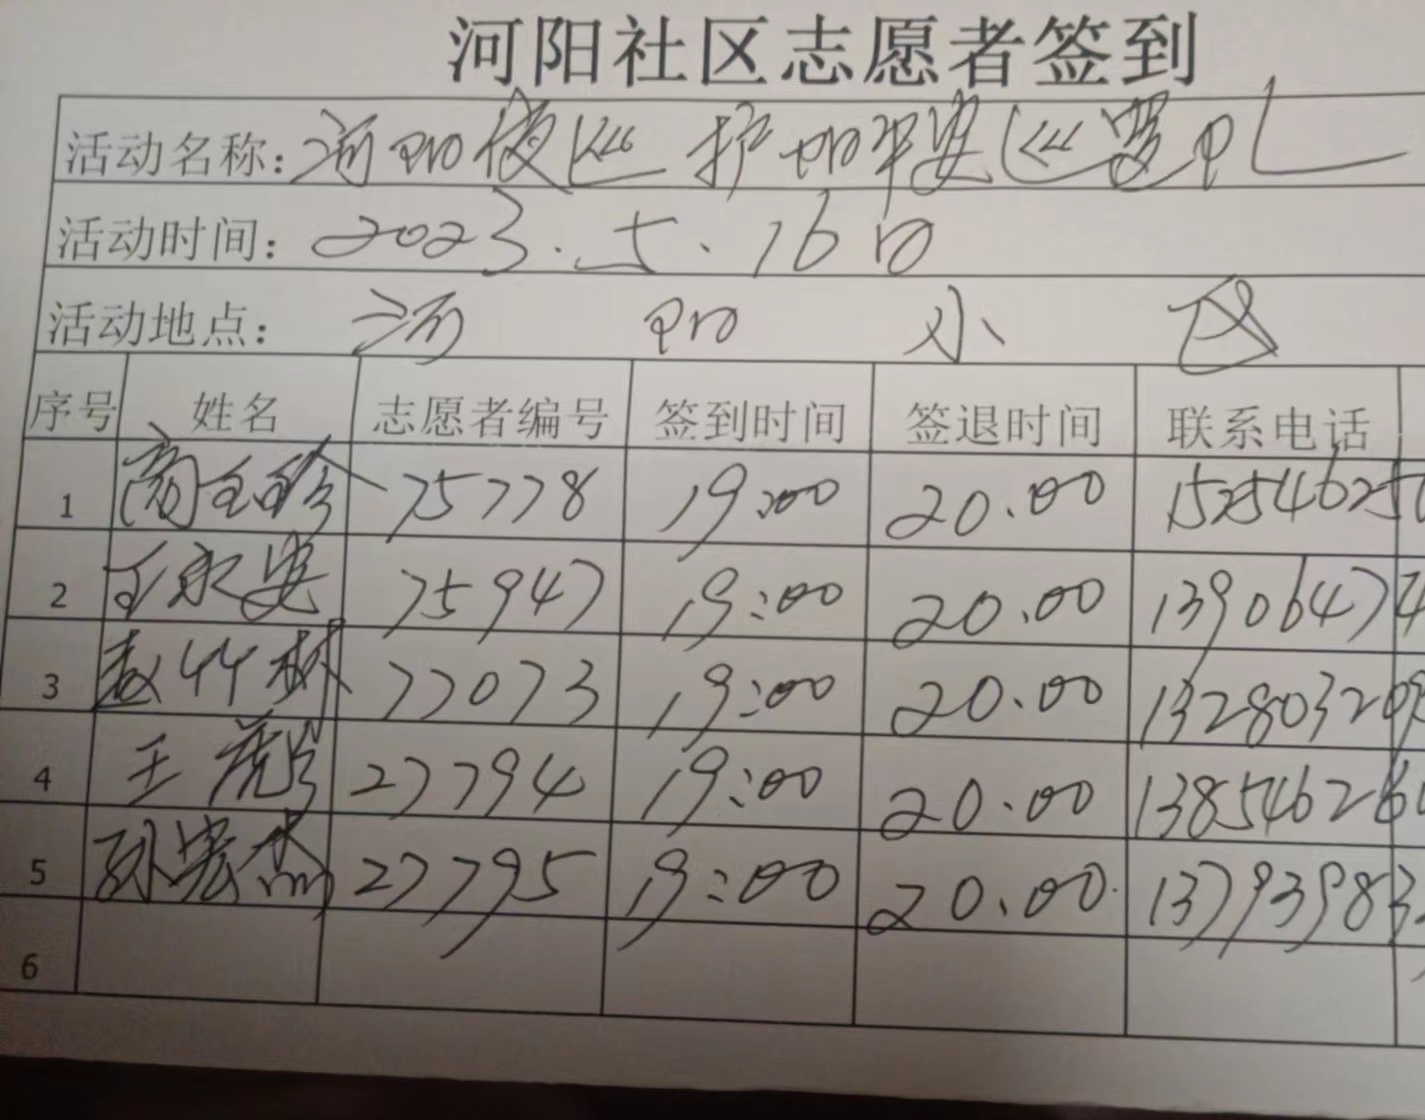 河阳社区志愿者签到
活动名称：河阳夜巡 护阳平安巡逻队
活动时间：2023.5.16日
活动地点：河 阳 小 区
序号 姓名 志愿者编号 签到时间 签退时间 联系电话
1 75778 19:00 20.00 152546250
2 王永安 75947 19:00 20.00 139064747
3 赵竹林 77073 19:00 20.00 132803209
4 王彪 27794 19:00 20.00 138546266
5 孙宏杰 27795 19:00 20.00 13793983
6